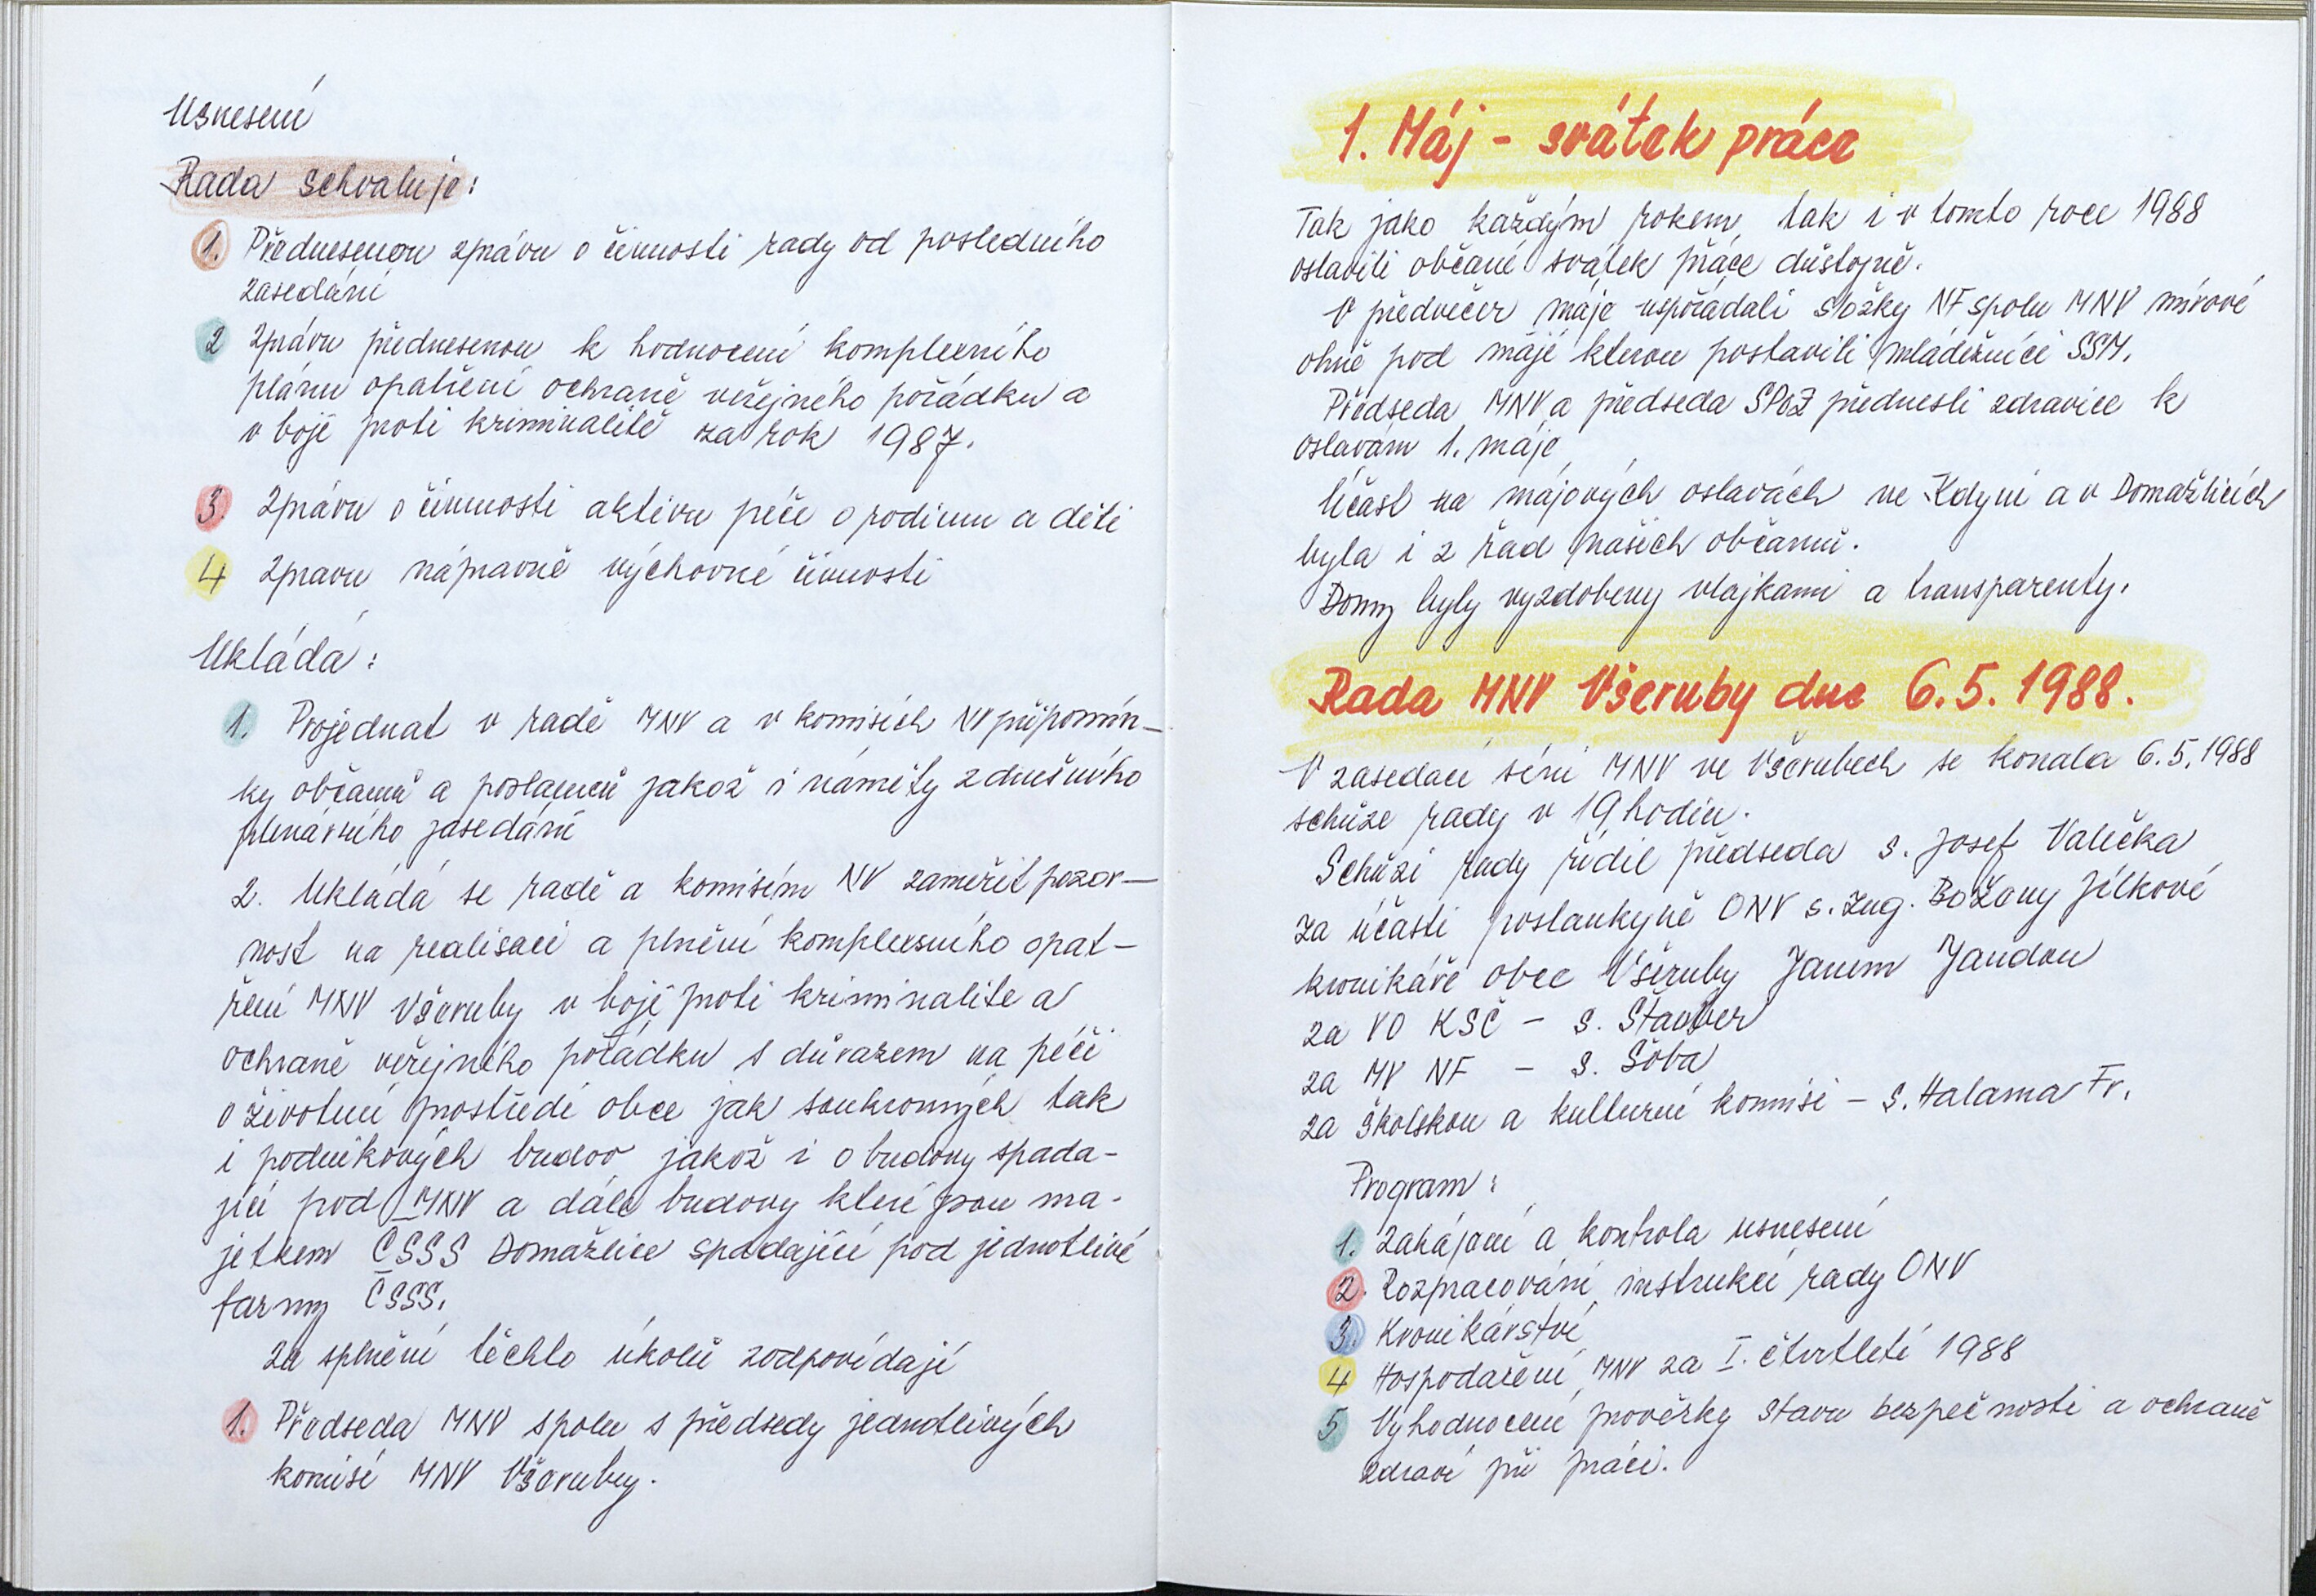 Usnesení
Rada schvaluje:
1. Přednesenou zprávu o činnosti rady od posledního
zasedání
2 zprávu přednesenou k hodnocení komplexního
plánu opatření ochraně veřejného pořádku a
v boji proti kriminalitě za rok 1987.
3. zprávu o činnosti aktivu péče o rodinu a děti
4 zpravu nápravně výchovné činnosti
Ukládá:
1. Projednat v radě MNV a v komisích NV připomín-
ky občanů a poslanců jakož i náměty z dnešního
plenárního zasedání
2. Ukládá se radě a komisím NV zaměřit pozor-
nost na realisaci a plnění komplexního opat-
ření MNV Všeruby v boji proti kriminalite a
ochraně veřejného pořádku s důrazem na péči
o životní prostředí obce jak soukromých tak
i podnikových budov jakož i o budovy spada-
jící pod MNV a dále budovy které jsou ma-
jetkem ČSSS Domažlice spadající pod jednotlivé
farmy ČSSS.
za splnění těchto úkolů zodpovídají
1. Předseda MNV spolu s předsedy jednotlivých
komisí MNV Všeruby.
1. Máj - svátek práce
Tak jako každým rokem, tak i v tomto roce 1988
oslavili občané svátek práce důstojně.
V předvečer máje uspořádali složky NF spolu MNV mírové
ohně pod májí kterou postavili mládežníci SSM.
Předseda MNV a předseda SPOZ přednesli zdravice k
oslavám 1. máje
Účast na májových oslavách ve Kdyni a v Domažlicích
byla i z řad našich občanů.
Domy byly vyzdobeny vlajkami a transparenty.
Rada MNV Všeruby dne 6.5.1988.
V zasedací síni MNV ve Všerubech se konala 6.5.1988
schůze rady v 19 hodin.
Schůzi rady řídil předseda s. Josef Valečka
za účasti poslankyně ONV s. Ing. Božany Jílkové
kronikáře obce Všeruby Janem Jandou
za VO KSČ - s. Stauber
za MV NF - s. Sőba
za školskou a kulturní komisi - s. Halama Fr.
Program:
1. Zahájení a kontrola usnesení
2. Rozpracování instrukcí rady ONV
3. Kronikářství
4 Hospodaření MNV za I. čtvrtletí 1988
5 Vyhodnocení prověrky stavu bezpečnosti a ochraně
zdraví při práci.